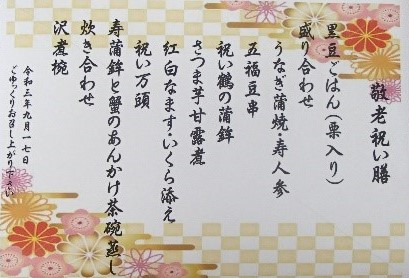 敬老祝い膳
黒豆ごはん(栗入り)
盛り合わせ
うなぎ蒲焼・寿人参
五福豆串
祝い鶴の蒲鉾
さつま芋甘露煮
紅白なます・いくら添え
祝い万頭
寿蒲鉾と蟹のあんかけ茶碗蒸し
炊き合わせ
沢煮椀
令和三年九月一七日
ごゆっくりお召し上がり下さい